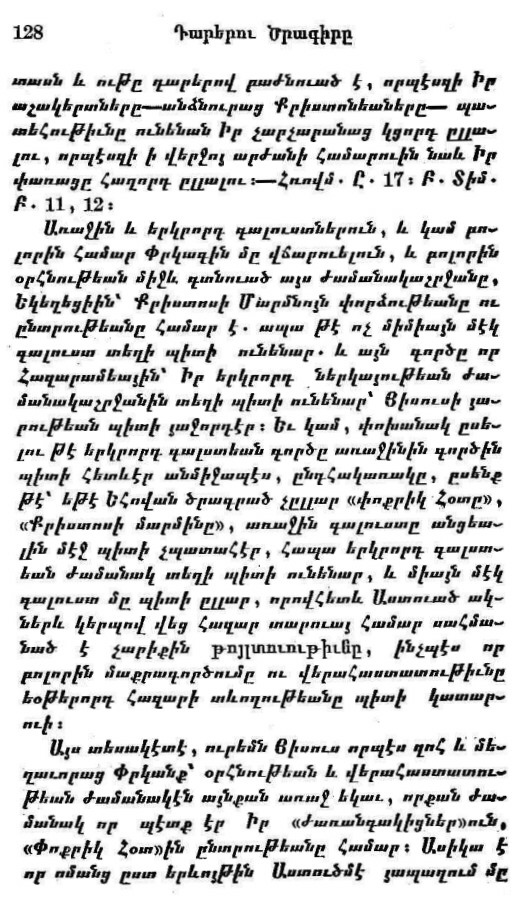 128 Դարերու Ծրագիրը
տասն և ութը դարերով բաժնուած է, որպէսզի Իր
աշակերտները—անձնուրաց Քրիստոնեաները— պա-
տեհութիւնը ունենան Իր չարչարանաց կցորդ ըլլա-
լու, որպէսզի ի վերջոյ արժանի համարուին նաև Իր
փառացը հաղորդ ըլլալու:—Հռովմ. Ը. 17: Բ. Տիմ.
Բ. 11, 12:
Առաջին և երկրորդ գալուստներուն, և կամ բո-
լորին համար Փրկագին մը վճարուելուն, և բոլորին
օրհնութեան միջև գտնուած այս ժամանակաշրջանը,
Եկեղեցիին՝ Քրիստոսի Մարմնոյն փորձութեանը ու
ընտրութեանը համար է. ապա թէ ոչ միմիայն մէկ
գալուստ տեղի պիտի ունենար. և այն գործը որ
Հազարամեային՝ Իր երկրորդ ներկայութեան ժա-
մանակաշրջանին տեղի պիտի ունենար՝ Յիսուսի յա-
րութեան պիտի յաջորդէր: Եւ կամ, փոխանակ ըսե-
լու թէ երկրորդ գալստեան գործը առաջինին գործին
պիտի հետևէր անմիջապէս, ընդհակառակը, ըսենք
թէ՝ եթէ Եհովան ծրագրած չըլլար «փոքրիկ հօտը»,
«Քրիստոսի մարմինը», առաջին գալուստը անցեա-
լին մէջ պիտի չպատահէր, հապա երկրորդ գալստ-
եան ժամանակ տեղի պիտի ունենար, և միայն մէկ
գալուստ մը պիտի ըլլար, որովհետև Աստուած ակ-
ներև կերպով վեց հազար տարուայ համար սահմա-
նած է չարիքին թոյլտուութիւնը, ինչպէս որ
բոլորին մաքրագործումը ու վերահաստատութիւնը
եօթերորդ հազարի տևողութեանը պիտի կատար-
ուի:
Այս տեսակէտէ, ուրեմն Յիսուս որպէս զոհ և մե-
ղաւորաց Փրկանք՝ օրհնութեան և վերահաստատու-
թեան ժամանակէն այնքան առաջ եկաւ, որքան ժա-
մանակ որ պէտք էր Իր «ժառանգակիցներ»ուն,
«Փոքրիկ Հօտ»ին ընտրութեանը համար: Ասիկա է
որ ոմանց ըստ երևոյթին Աստուծմէ յապաղում մը